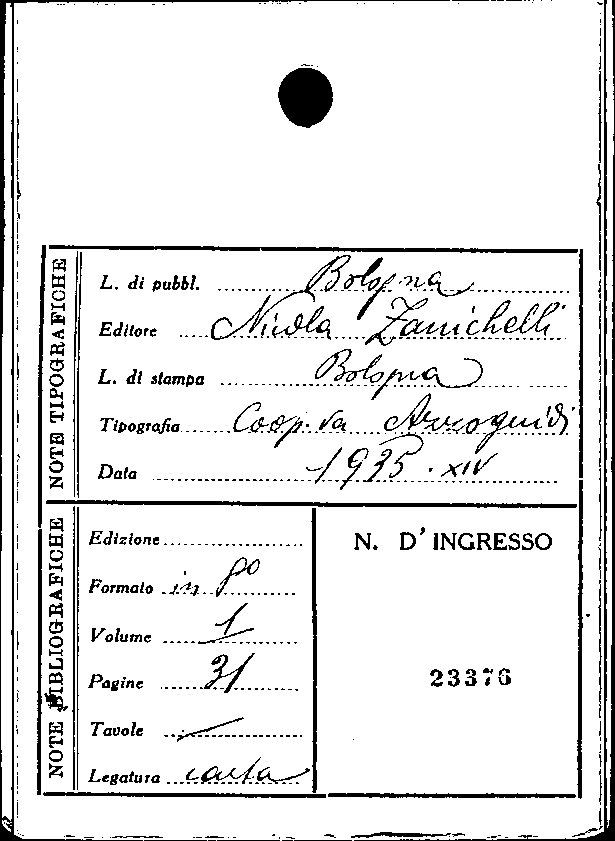 NOTE TIPOGRAFICHE
L. di pubbl. Bologna
Editore Nicola Zanichelli
L. di stampa Bologna
Tipografia Coop.va Azzoguidi
Data 1935 . XIV
NOTE BIBLIOGRAFICHE
Edizione
Formato in 8º
Volume 1
Pagine 31
Tavole —
Legatura carta
N. D'INGRESSO
23376